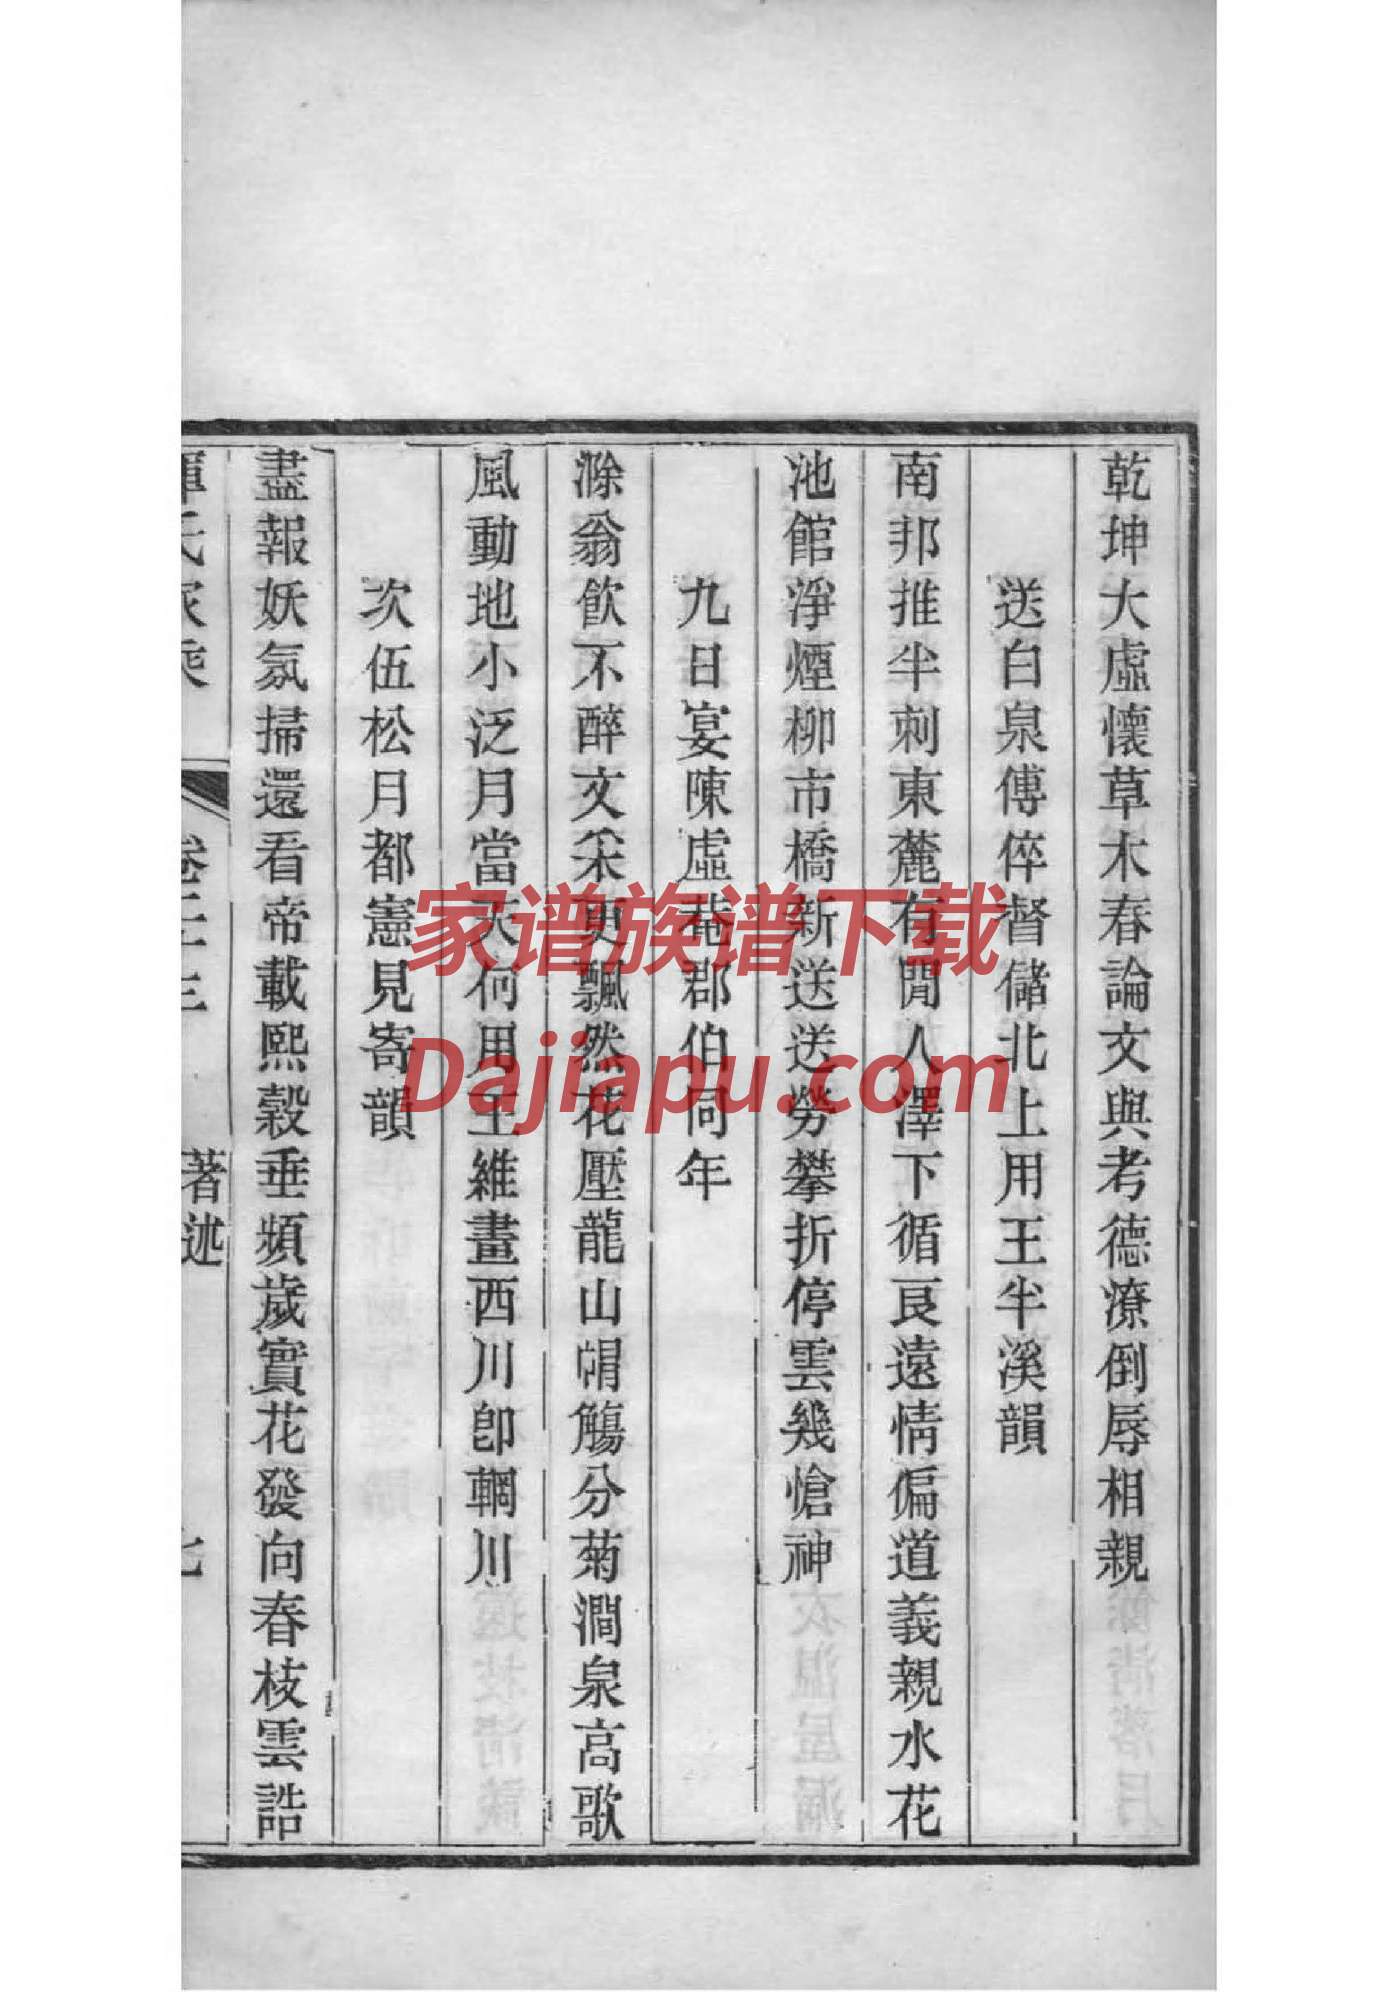 乾坤大虛懷草木春論文與考德潦倒辱相親
送白泉傅倅督儲北上用王半溪韻
南邦推半刺東麓有閒人澤下循良遠情偏道義親水花
池館淨煙柳市橋新送送勞攀折停雲幾愴神
九日宴陳虛菴郡伯同年
滁翁飲不醉文采更飄然花壓龍山帽觴分菊澗泉高歌
風動地小泛月當天何用王維畫西川卽輞川
次伍松月都憲見寄韻
盡報妖氛掃還看帝載熙穀垂頻歲實花發向春枝雲誥
惲氏家乘 卷三 著述 七
家谱族谱下载
Dajiapu.com